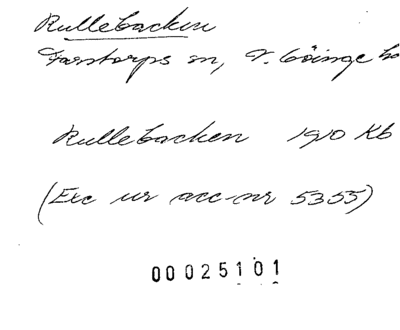 Rullebacken
Farstorps sn, V. Göinge hd
Rullebacken 1910 Kb
(Exc ur acc-nr 5355)
00025101